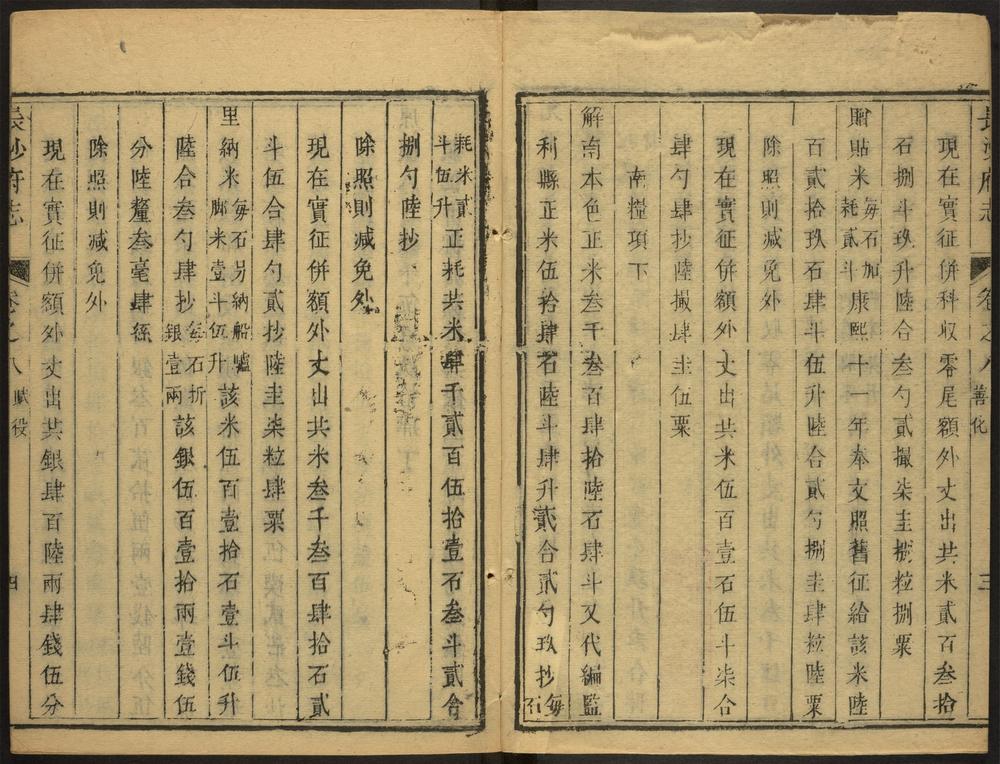 長沙府志 卷之八 善化 三
現在實征併科收零尾額外丈出共米貳百叁拾
石捌斗玖升陸合叁勺貳撮柒圭捌粒捌粟
贈貼米每石加耗貳斗康熙十一年奉文照舊征給該米陸
百貳拾玖石肆斗伍升陸合貳勺捌圭肆粒陸粟
除照則減免外
現在實征併額外丈出共米伍百壹石伍斗柒合
肆勺肆抄陸撮肆圭伍粟
南糧項下
解南本色正米叁千叁百肆拾陸石肆斗又代編監
利縣正米伍拾肆石陸斗肆升貳合貳勺玖抄每石
耗米貳斗伍升正耗共米肆千貳百伍拾壹石叁斗貳合
捌勺陸抄
除照則減免外
現在實征併額外丈出共米叁千叁百肆拾石貳
斗伍合肆勺貳抄陸圭柒粒肆粟
里納米每石另納船驢脚米壹斗伍升該米伍百壹拾石壹斗伍升
陸合叁勺肆抄每石折銀壹兩該銀伍百壹拾兩壹錢伍
分陸釐叁毫肆絲
除照則減免外
現在實征併額外丈出共銀肆百陸兩肆錢伍分
長沙府志 卷之八 賦役 四